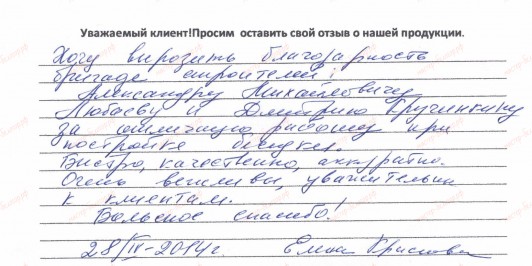 Уважаемый клиент!Просим оставить свой отзыв о нашей продукции.
Хочу выразить благодарность
бригаде строителей:
Александру Михайловичу
Любаеву и Дмитрию Кручинкину
за отличную работу при
постройке беседки.
Быстро, качественно, аккуратно.
Очень вежливы, уважительны
к клиентам.
Большое спасибо!
28/IV-2014г. Елена